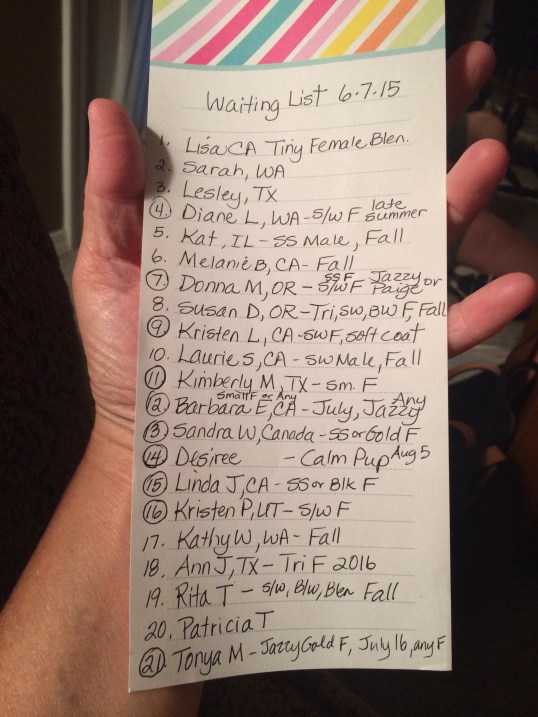 Waiting List 6.7.15
1. Lisa CA Tiny Female Blen.
2. Sarah, WA
3. Lesley, TX
4. Diane L, WA - S/W F late summer
5. Kat, IL - SS Male, Fall
6. Melanie B, CA - Fall
7. Donna M, OR - SSF S/W F Jazzy or Paige
8. Susan D, OR - Tri, SW, BW F, Fall
9. Kristen L, CA - SWF, soft coat
10. Laurie S, CA - SW Male, Fall
11. Kimberly M, TX - sm. F
12. Barbara E, CA - July, Jazzy Any Small F or Any
13. Sandra W, Canada - SS or Gold F
14. Desiree - Calm Pup Aug 5
15. Linda J, CA - SS or Blk F
16. Kristen P, UT - S/W F
17. Kathy W, WA - Fall
18. Ann J, TX - Tri F 2016
19. Rita T - S/W, B/W, Blen Fall
20. Patricia T
21. Tonya M - Jazzy Gold F, July 16, any F